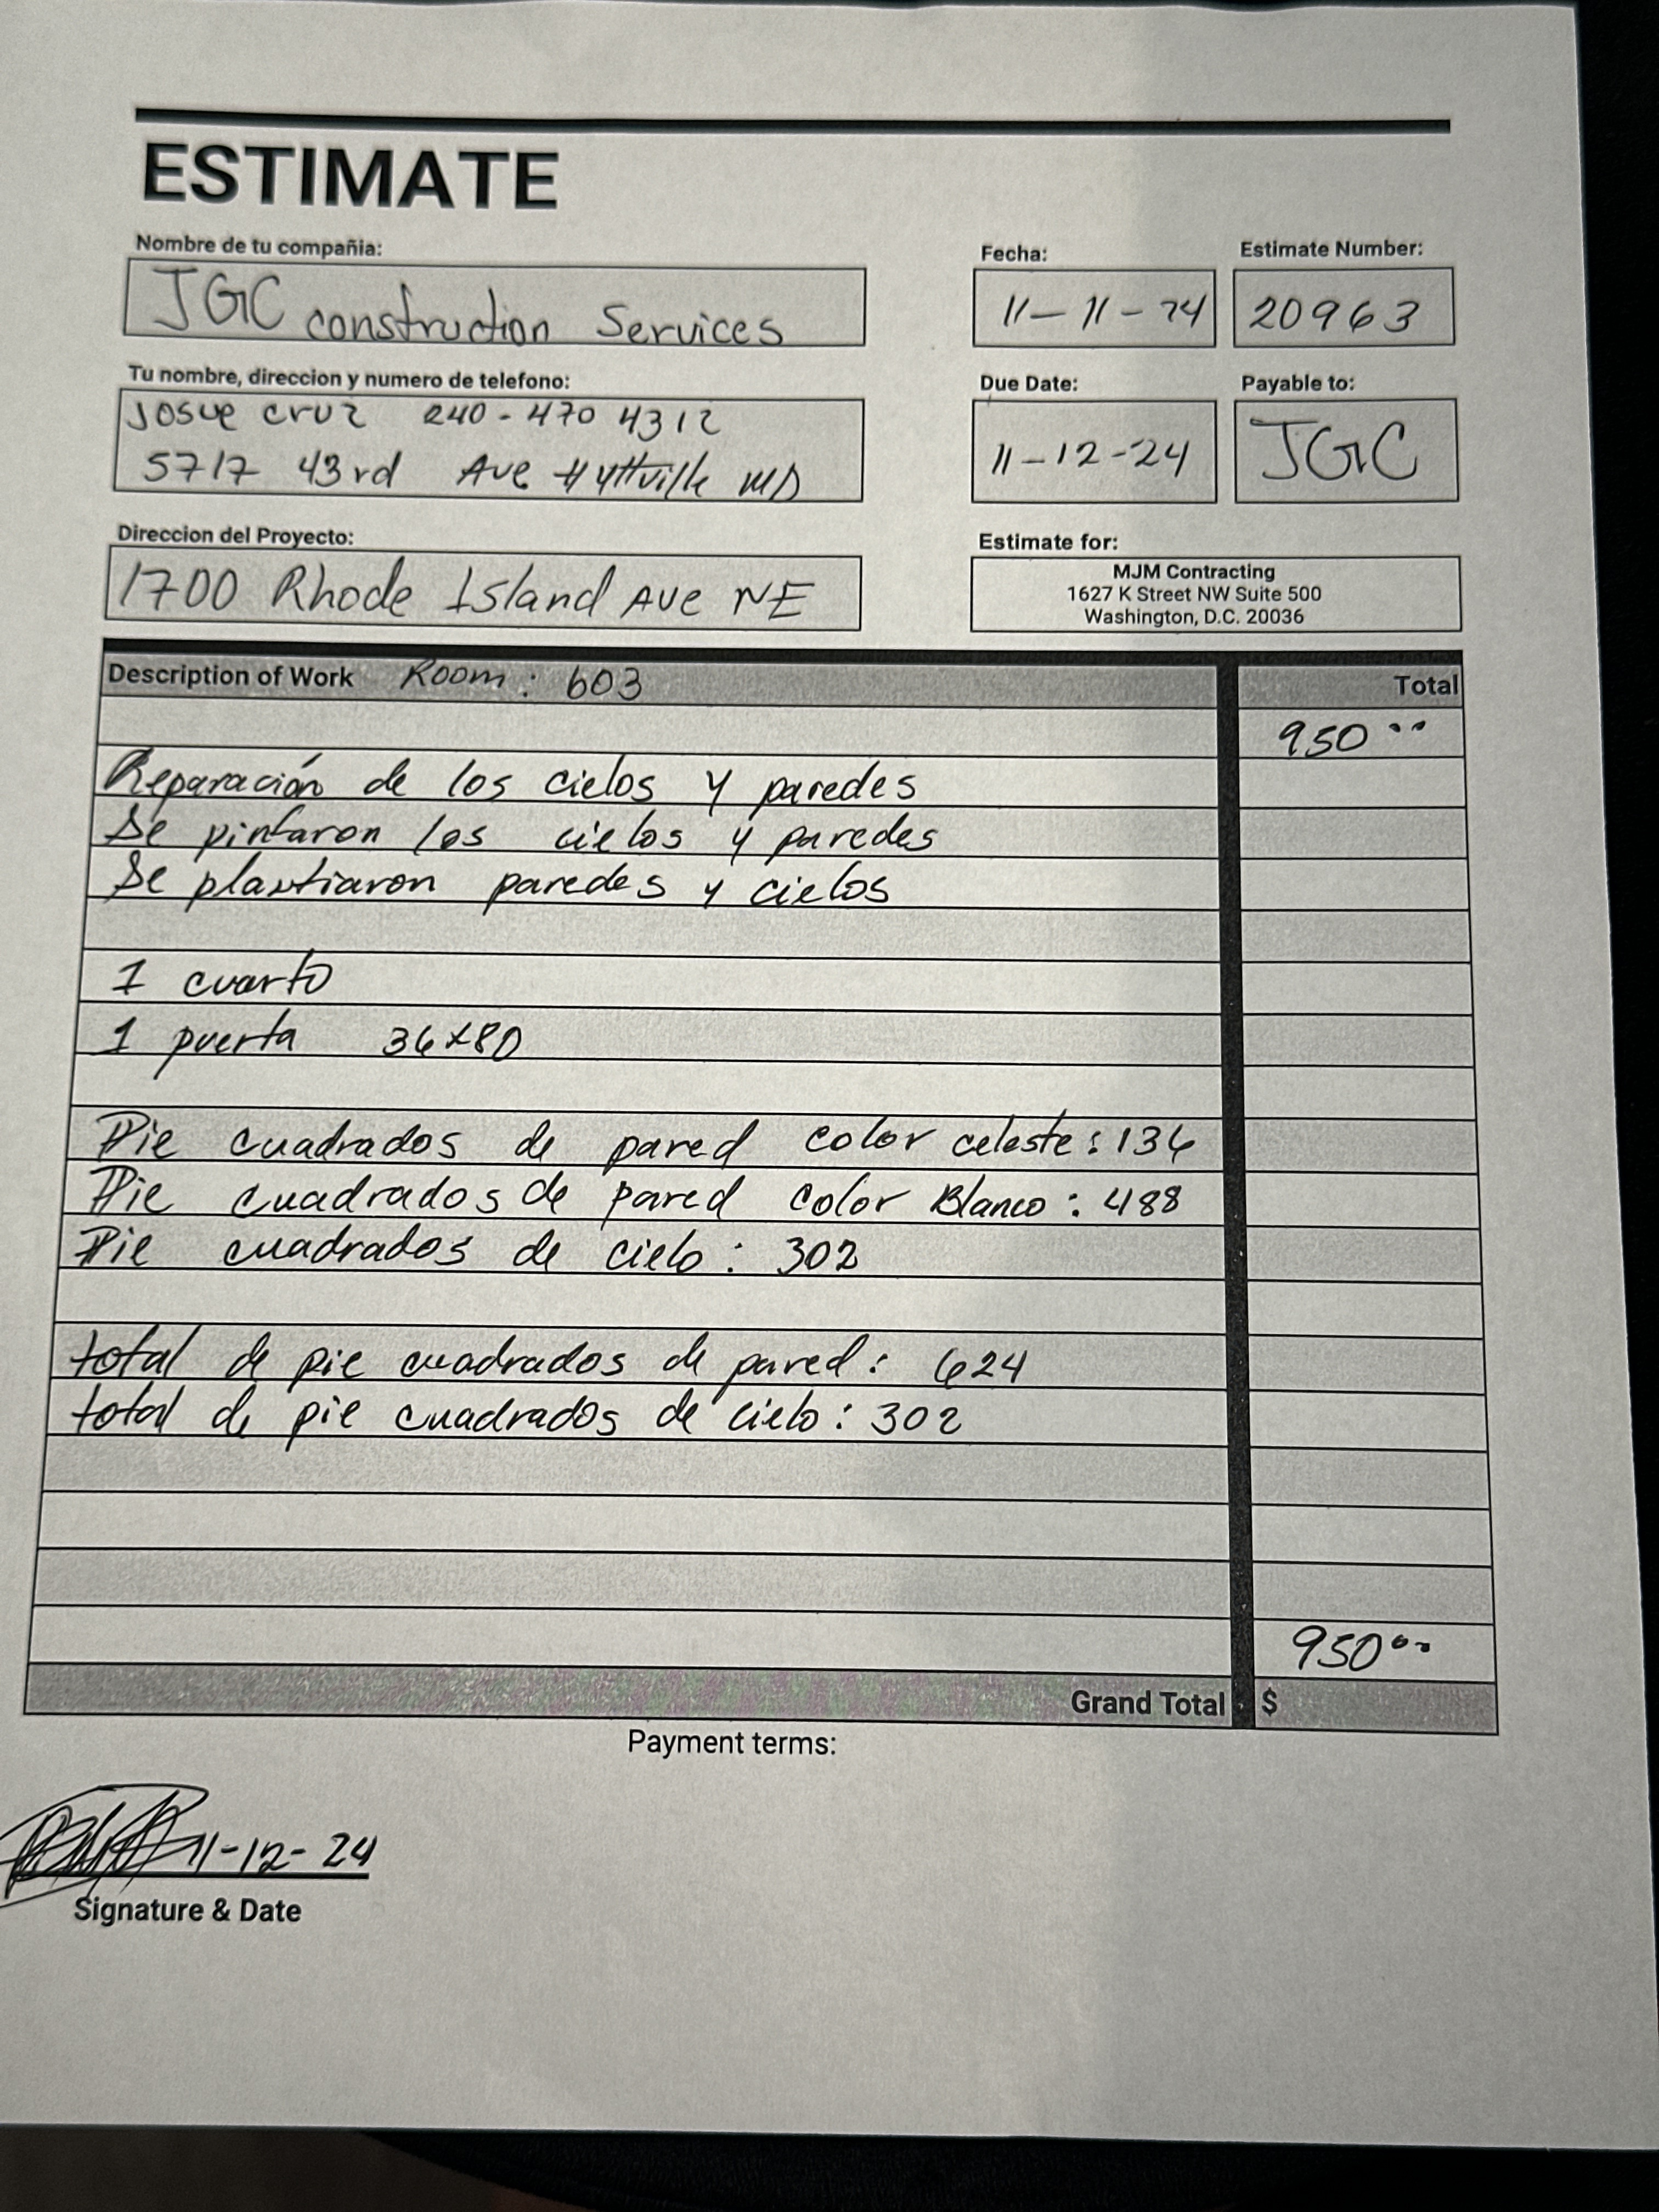 ESTIMATE
Nombre de tu compañia:
JGC construction Services
Fecha:
11-11-24
Estimate Number:
20963
Tu nombre, direccion y numero de telefono:
Josue cruz 240-470 4312
5717 43rd Ave Hyttville MD
Due Date:
11-12-24
Payable to:
JGC
Direccion del Proyecto:
1700 Rhode Island Ave NE
Estimate for:
MJM Contracting
1627 K Street NW Suite 500
Washington, D.C. 20036
Description of Work Room: 603 Total
950 00
Reparación de los cielos y paredes
Se pintaron los cielos y paredes
Se plastiaron paredes y cielos
1 cuarto
1 puerta 36x80
Pie cuadrados de pared color celeste: 136
Pie cuadrados de pared color Blanco: 488
Pie cuadrados de cielo: 302
total de pie cuadrados de pared: 624
total de pie cuadrados de cielo: 302
950 00
Grand Total $
Payment terms:
11-12-24
Signature & Date